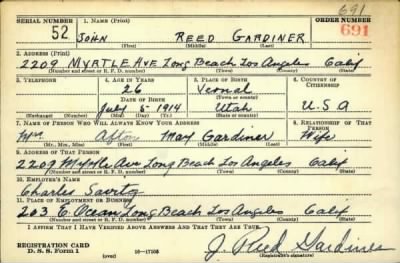 691
SERIAL NUMBER 1. NAME (Print) ORDER NUMBER
52 JOHN REED GARDINER 691
(First) (Middle) (Last)
2. ADDRESS (Print)
2209 MYRTLE AVE Long Beach Los Angeles Calif
(Number and street or R. F. D. number) (Town) (County) (State)
3. TELEPHONE 4. AGE IN YEARS 5. PLACE OF BIRTH 6. COUNTRY OF CITIZENSHIP
26 Vernal
DATE OF BIRTH (Town or county)
July 5 1914 Utah U.S.A
(Exchange) (Number) (Mo.) (Day) (Yr.) (State or country)
7. NAME OF PERSON WHO WILL ALWAYS KNOW YOUR ADDRESS 8. RELATIONSHIP OF THAT PERSON
Mrs Afton May Gardiner Wife
(Mr., Mrs., Miss) (First) (Middle) (Last)
9. ADDRESS OF THAT PERSON
2209 Myrtle Ave Long Beach Los Angeles Calif
(Number and street or R. F. D. number) (Town) (County) (State)
10. EMPLOYER'S NAME
Charles
11. PLACE OF EMPLOYMENT OR BUSINESS
203 E. Ocean Long Beach Los Angeles Calif
(Number and street or R. F. D. number) (Town) (County) (State)
I AFFIRM THAT I HAVE VERIFIED ABOVE ANSWERS AND THAT THEY ARE TRUE.
REGISTRATION CARD J. Reed Gardiner
D. S. S. Form 1 (over) (Registrant's signature)